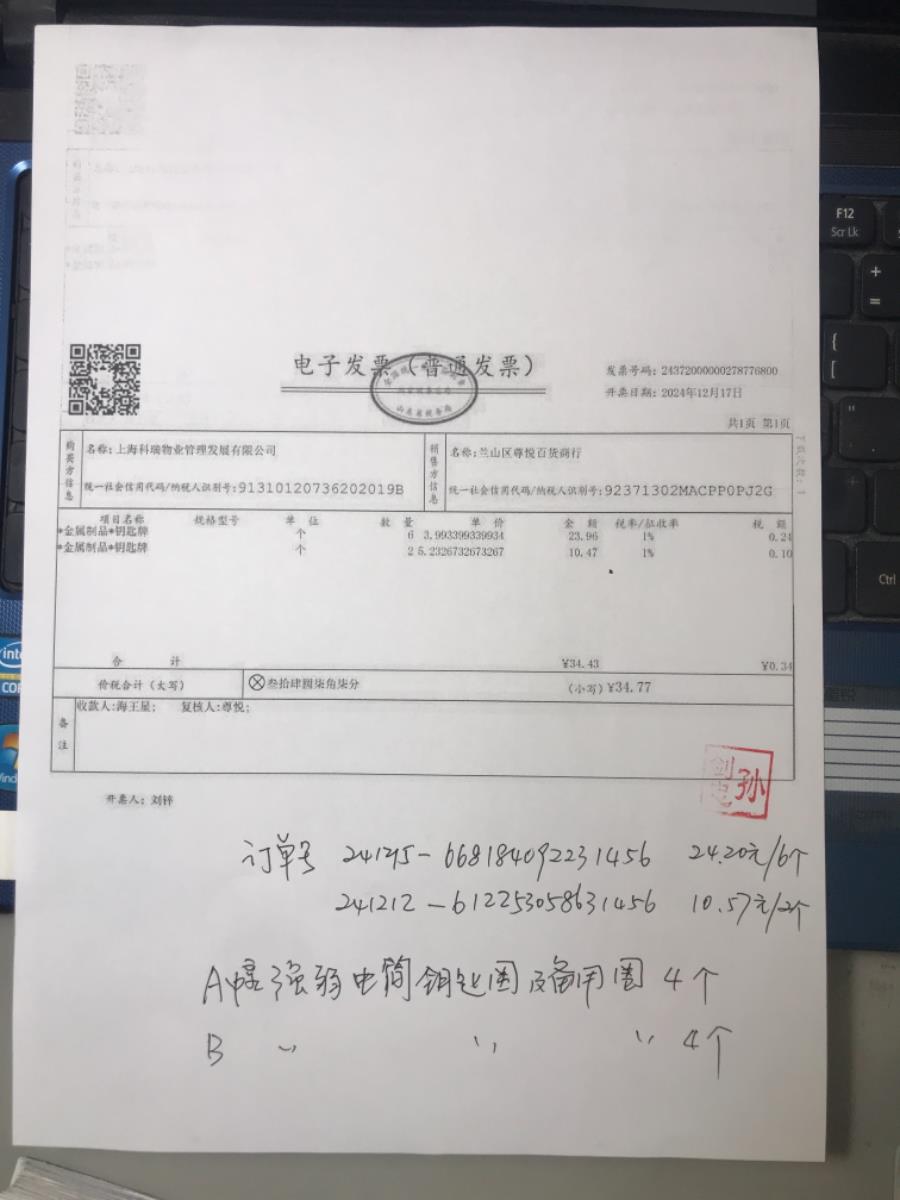 电子发票（普通发票）
发票号码：24372000000278776800
开票日期：2024年12月17日
共1页 第1页
购买方信息
名称：上海科瑞物业管理发展有限公司
统一社会信用代码/纳税人识别号：91310120736202019B
销售方信息
名称：兰山区尊悦百货商行
统一社会信用代码/纳税人识别号：92371302MACPP0PJ2G
项目名称 规格型号 单位 数量 单价 金额 税率/征收率 税额
*金属制品*钥匙牌 个 6 3.993399339934 23.96 1% 0.24
*金属制品*钥匙牌 个 2 5.2326732673267 10.47 1% 0.10
合计 ¥34.43 ¥0.34
价税合计（大写） ⊗叁拾肆圆柒角柒分 （小写）¥34.77
备注
收款人：海王星； 复核人：尊悦；
开票人：刘锌
孙
订单号 241215-668184092231456 24.20元/6个
241212-612253058631456 10.57元/2个
A幢强弱电筒钥匙圈及备用圈 4个
B 〃 〃 〃 4个
F12
Scr Lk
+
=
{
[
"
Ctrl